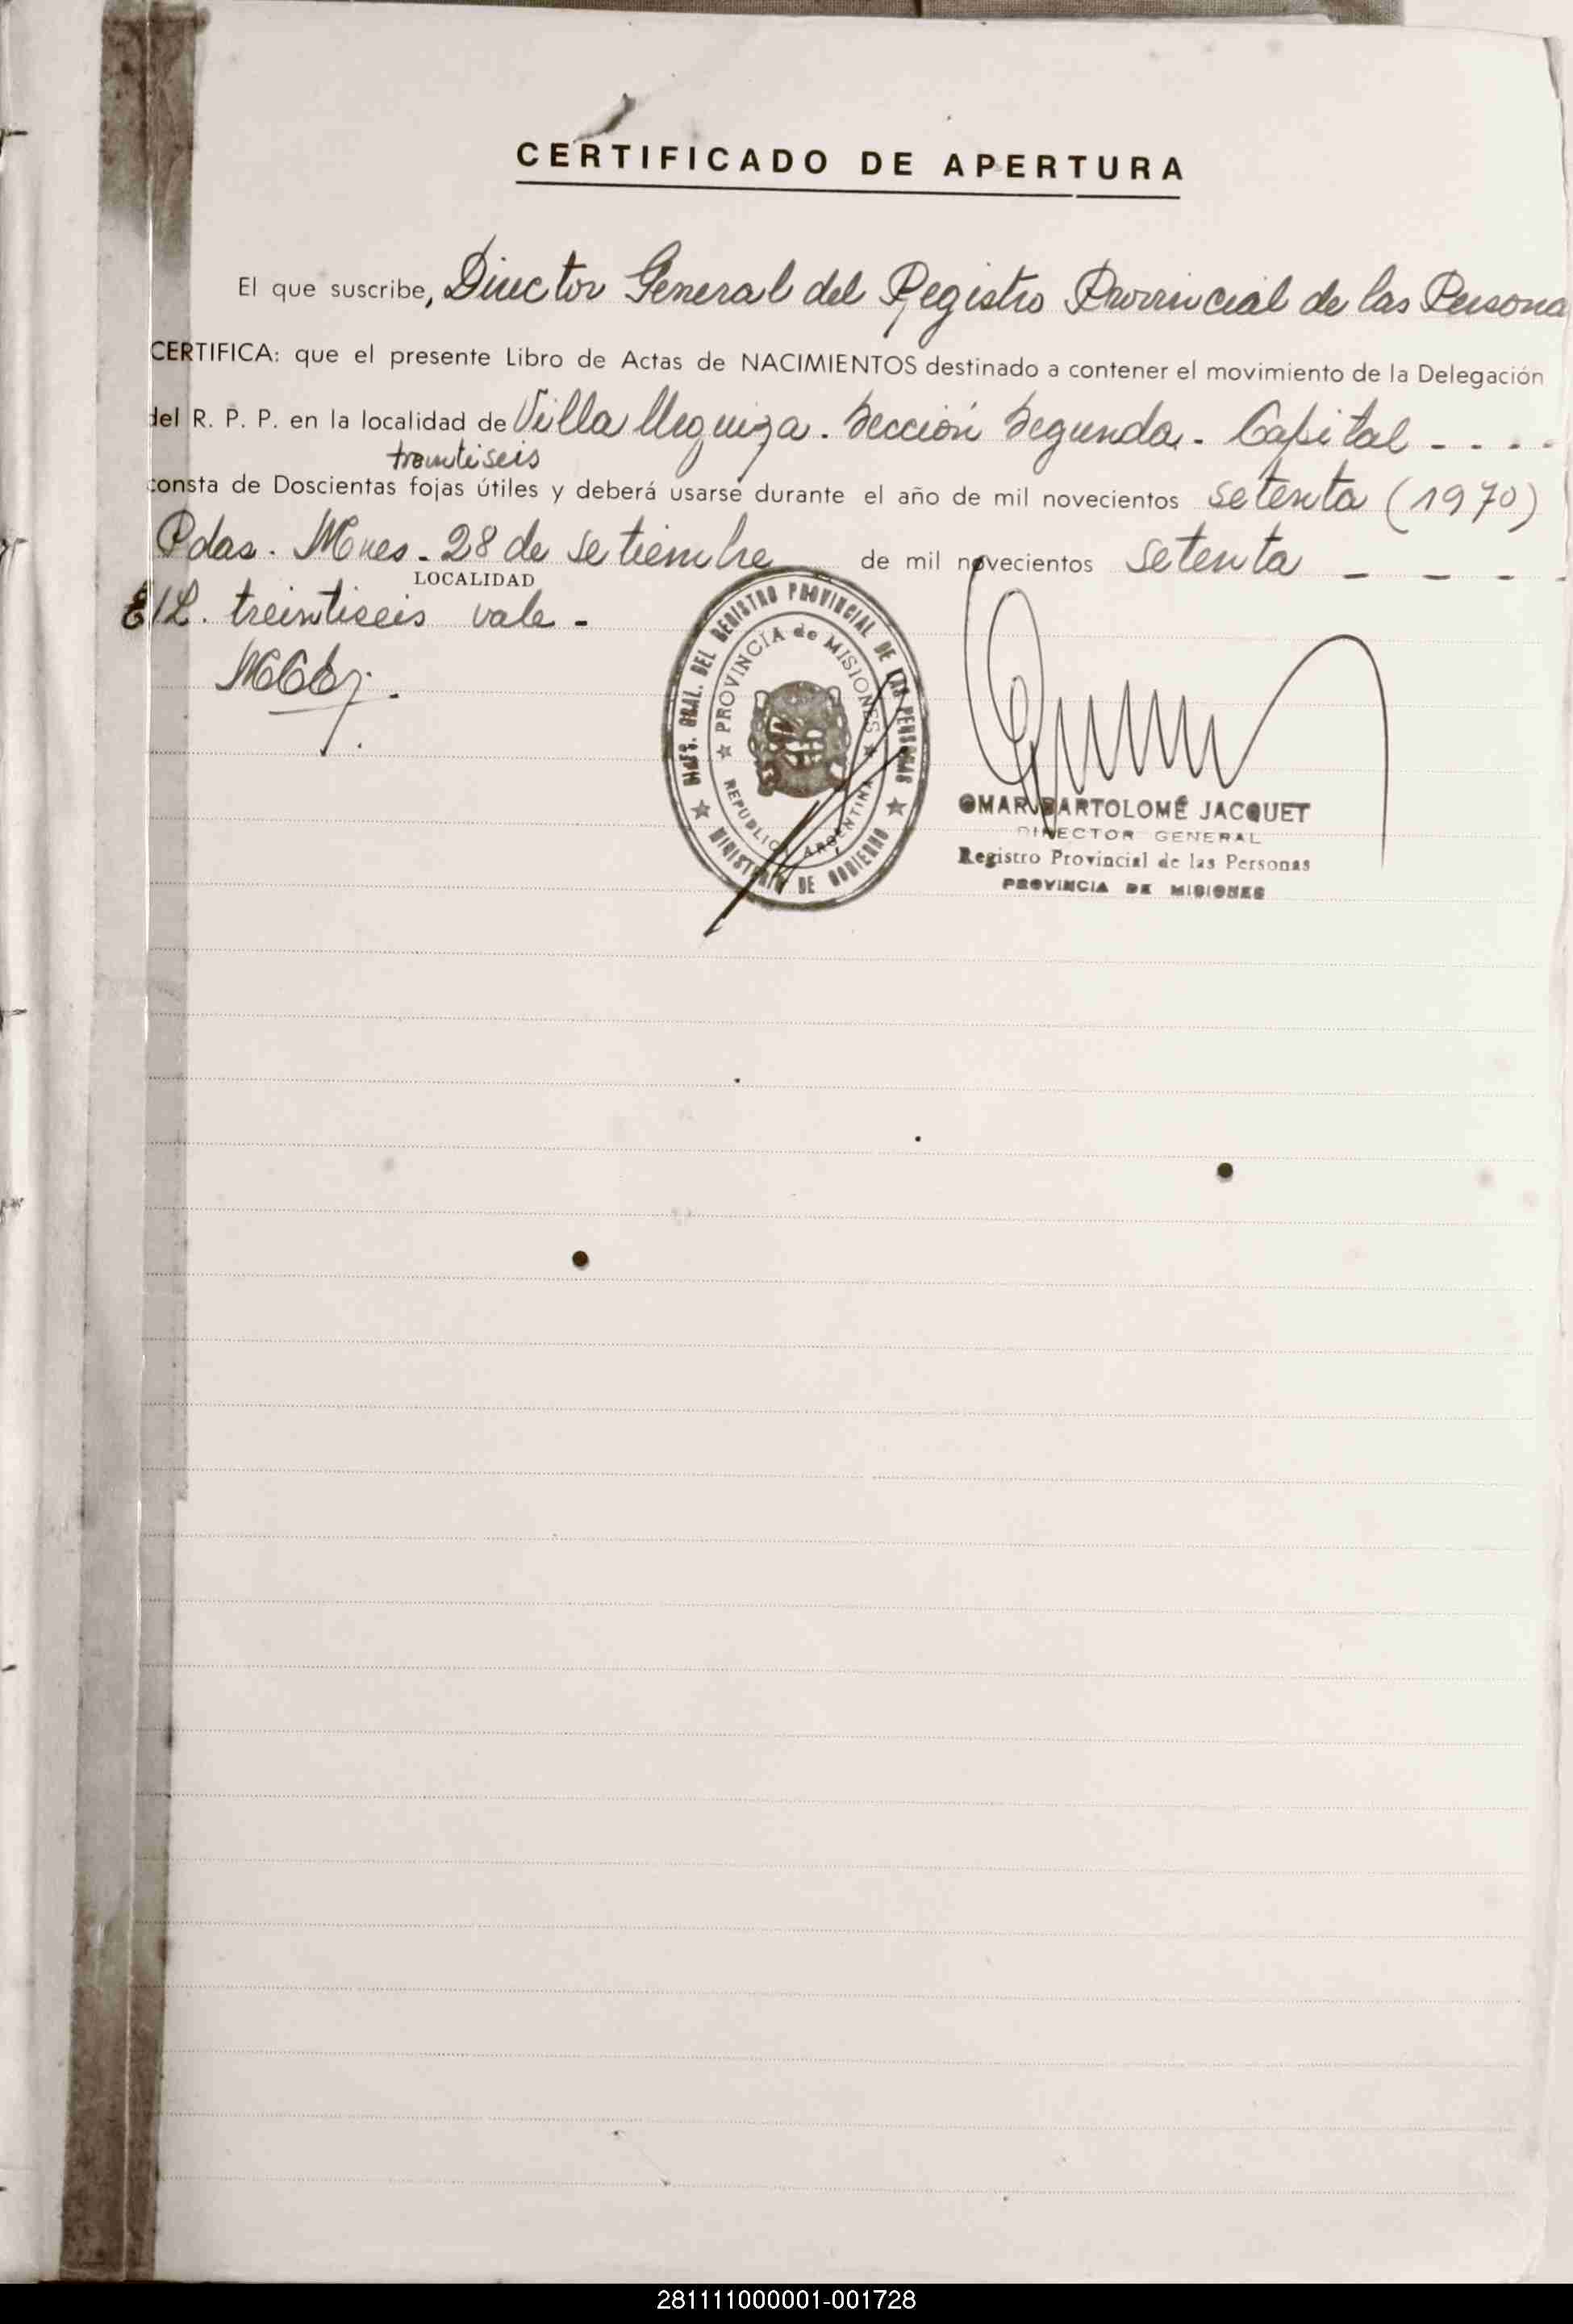 CERTIFICADO DE APERTURA
El que suscribe, Director General del Registro Provincial de las Persona
CERTIFICA: que el presente Libro de Actas de NACIMIENTOS destinado a contener el movimiento de la Delegación
del R. P. P. en la localidad de Villa Urquiza. Sección Segunda. Capital - - - -
treintiseis
consta de Doscientas fojas útiles y deberá usarse durante el año de mil novecientos setenta (1970)
Pdas. Mnes. 28 de setiembre de mil novecientos setenta - - - -
LOCALIDAD
E/L. treintiseis vale -
DIREC. GRAL. DEL REGISTRO PROVINCIAL DE LAS PERSONAS
★ PROVINCIA de MISIONES ★
REPUBLICA ARGENTINA
★ MINISTERIO DE GOBIERNO ★
OMAR BARTOLOMÉ JACQUET
DIRECTOR GENERAL
Registro Provincial de las Personas
PROVINCIA DE MISIONES
281111000001-001728